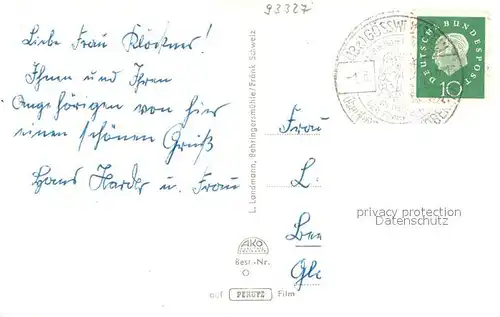 93327
Liebe Frau Klostner!
Ihnen und Ihren
Angehörigen von hier
einen schönen Gruß
Hans Harder u. Frau
L. Landmann, Behringersmühle/Fränk. Schweiz
AKO
Best.-Nr.
O
auf PERUTZ Film
DEUTSCHE BUNDESPOST
10
Frau
L.
Be
Gl
privacy protection
Datenschutz